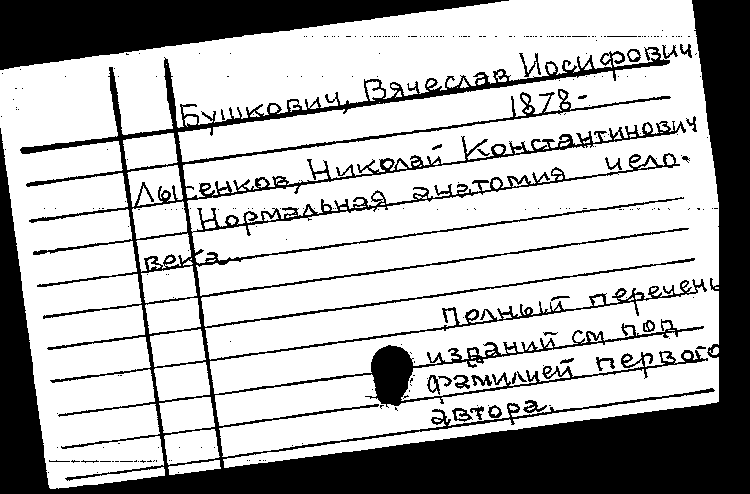 Бушкович, Вячеслав Иосифович
1878-
Лысенков, Николай Константинович
Нормальная анатомия чело-
века.
Полный перечень
изданий см под
фамилией первого
автора.